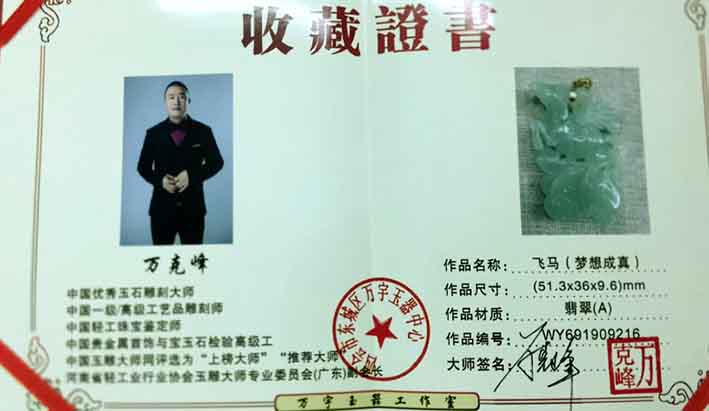 收藏證書
万克峰
中国优秀玉石雕刻大师
中国一级/高级工艺品雕刻师
中国轻工珠宝鉴定师
中国贵金属首饰与宝玉石检验高级工
中国玉雕大师网评选为“上榜大师”“推荐大师”
河南省轻工业行业协会玉雕大师专业委员会(广东)副会长
作品名称：飞马（梦想成真）
作品尺寸：(51.3x36x9.6)mm
作品材质：翡翠(A)
作品编号：WY691909216
大师签名：万克峰
万克峰
四会市东城区万宇玉器中心
万宇玉器工作室